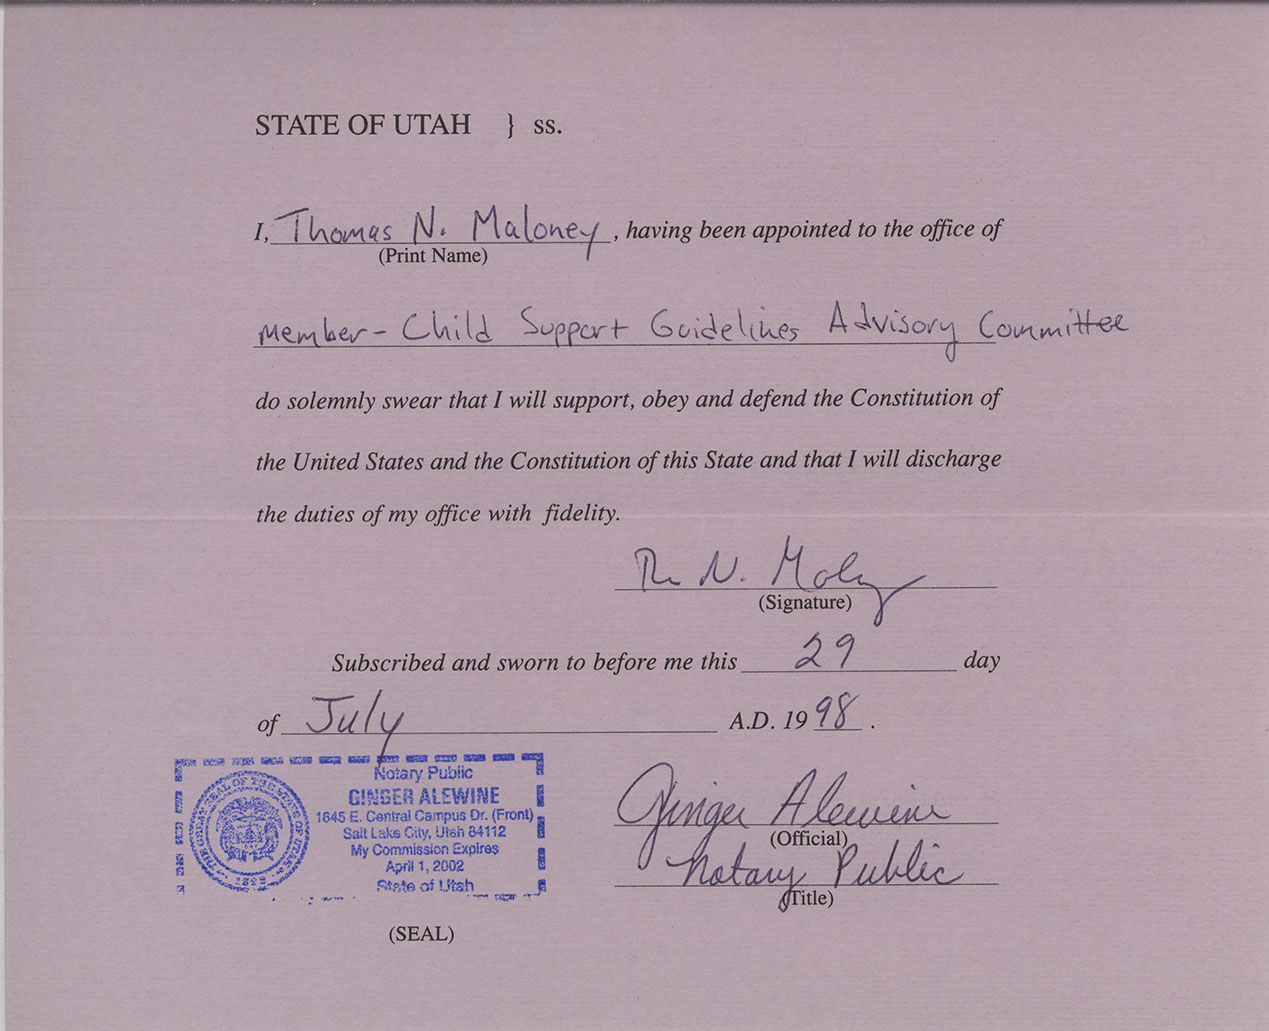 STATE OF UTAH } ss.
I, Thomas N. Maloney, having been appointed to the office of
(Print Name)
member - Child Support Guidelines Advisory Committee
do solemnly swear that I will support, obey and defend the Constitution of
the United States and the Constitution of this State and that I will discharge
the duties of my office with fidelity.
N. Maloney
(Signature)
Subscribed and sworn to before me this 29 day
of July A.D. 1998.
Notary Public
GINGER ALEWINE
1645 E. Central Campus Dr. (Front)
Salt Lake City, Utah 84112
My Commission Expires
April 1, 2002
State of Utah
THE GREAT SEAL OF THE STATE OF UTAH
1896
(SEAL)
Ginger Alewine
(Official)
Notary Public
(Title)